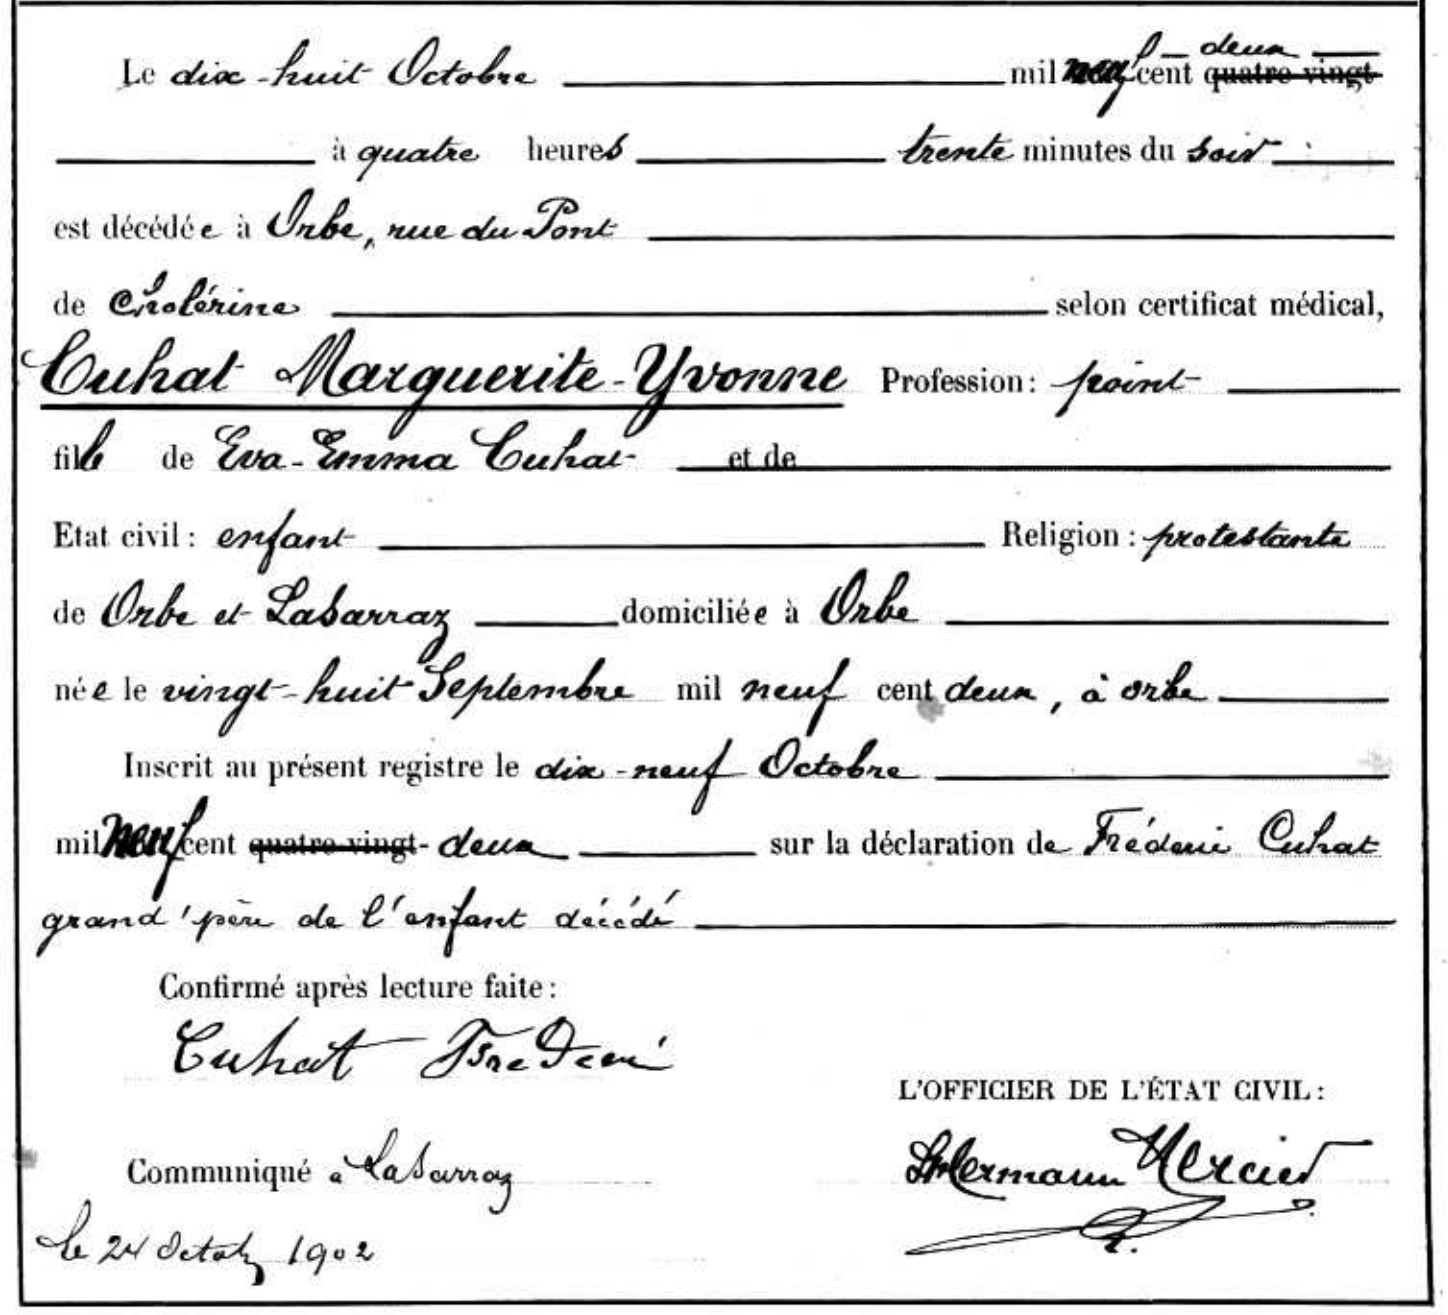 Le dix-huit Octobre mil neuf cent quatre-vingt deux
à quatre heures trente minutes du soir
est décédée à Orbe, rue du Pont
de Cholérine selon certificat médical,
Cuhat Marguerite-Yvonne Profession: point
fille de Eva-Emma Cuhat et de
Etat civil: enfant Religion: protestante
de Orbe et LaSarraz domiciliée à Orbe
née le vingt-huit Septembre mil neuf cent deux, à orbe
Inscrit au présent registre le dix-neuf Octobre
mil neuf cent quatre-vingt-deux sur la déclaration de Fréderic Cuhat
grand'père de l'enfant décédé
Confirmé après lecture faite:
Cuhat Frederi
L'OFFICIER DE L'ÉTAT CIVIL:
Communiqué a LaSarraz Hermann Mercier
le 24 Octob 1902